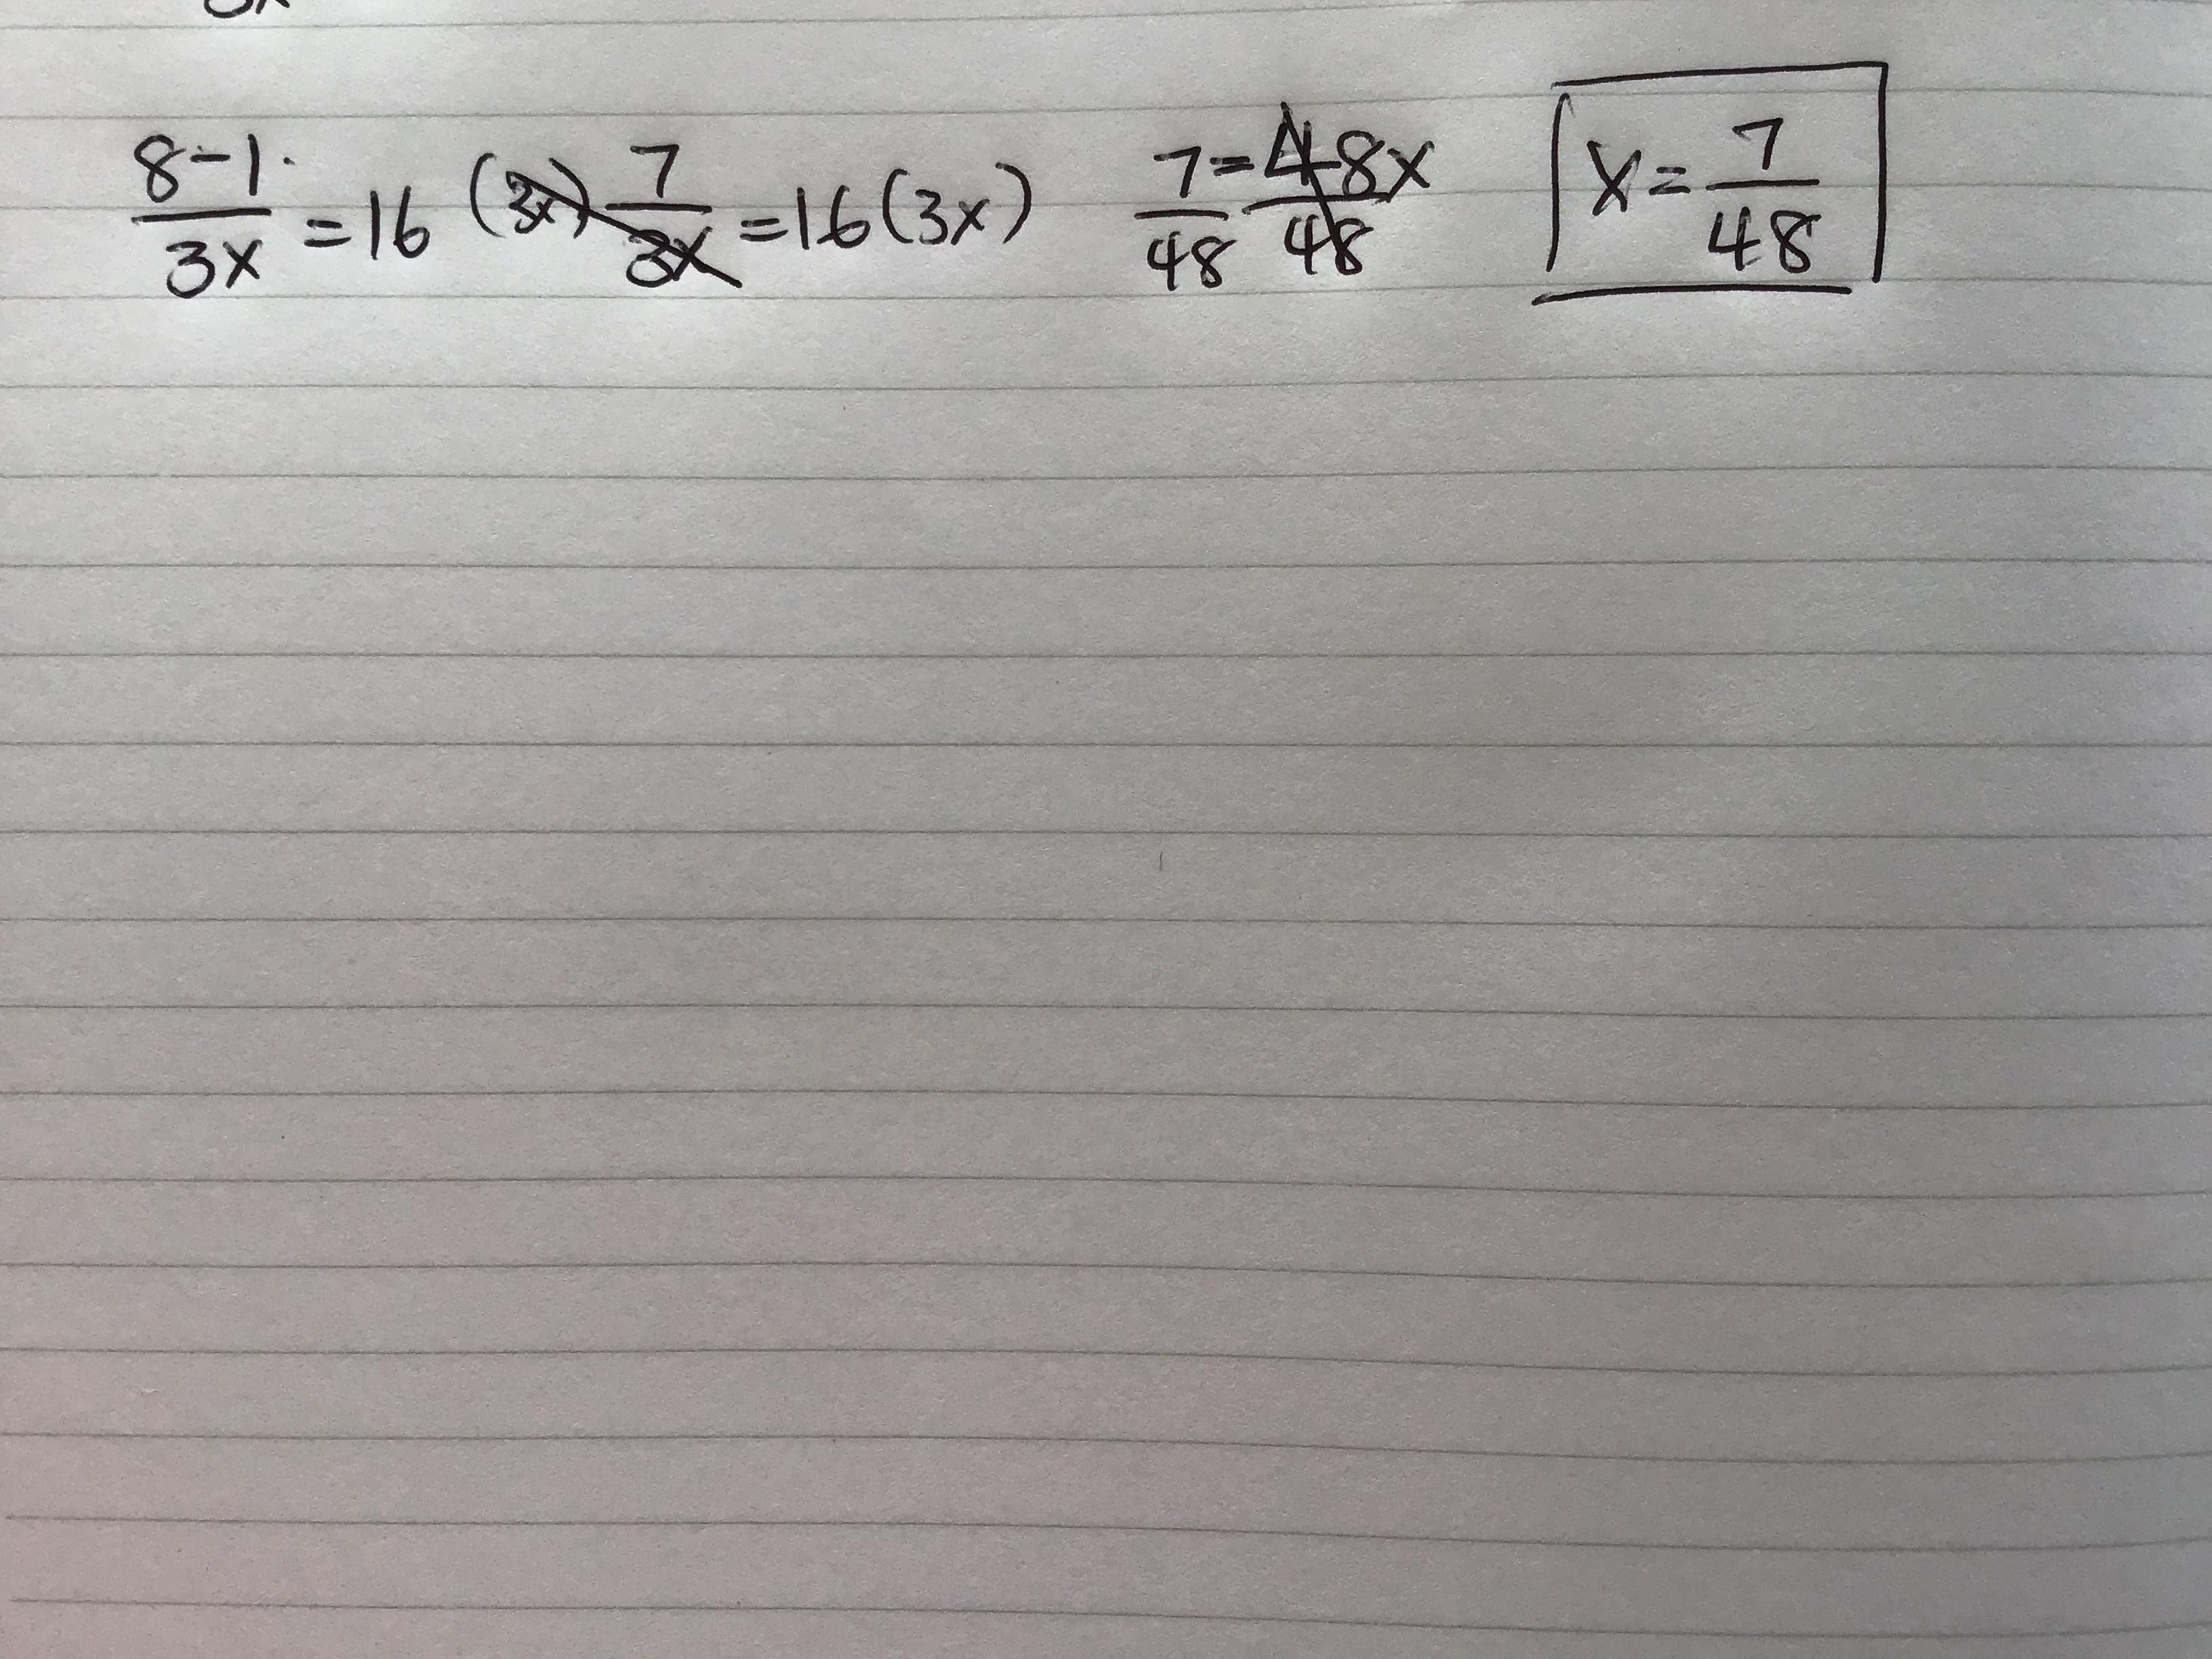 8-1/3x = 16 (3x) 7/3x = 16(3x) 7/48 = 48x/48 x = 7/48